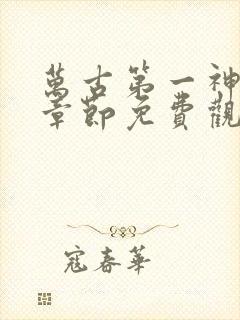 萬古第一神
章節免費觀
寇春華